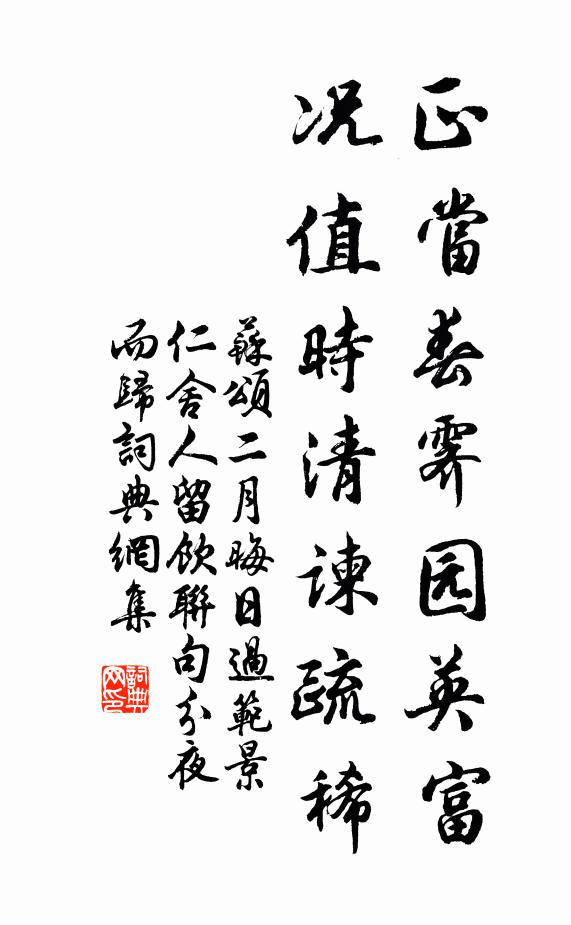 正當春霽园英富
况值時清諫疏稀
蘇頌二月晦日過範景
仁舍人留飲聯句分夜
而歸詞典網集
詞典
网印